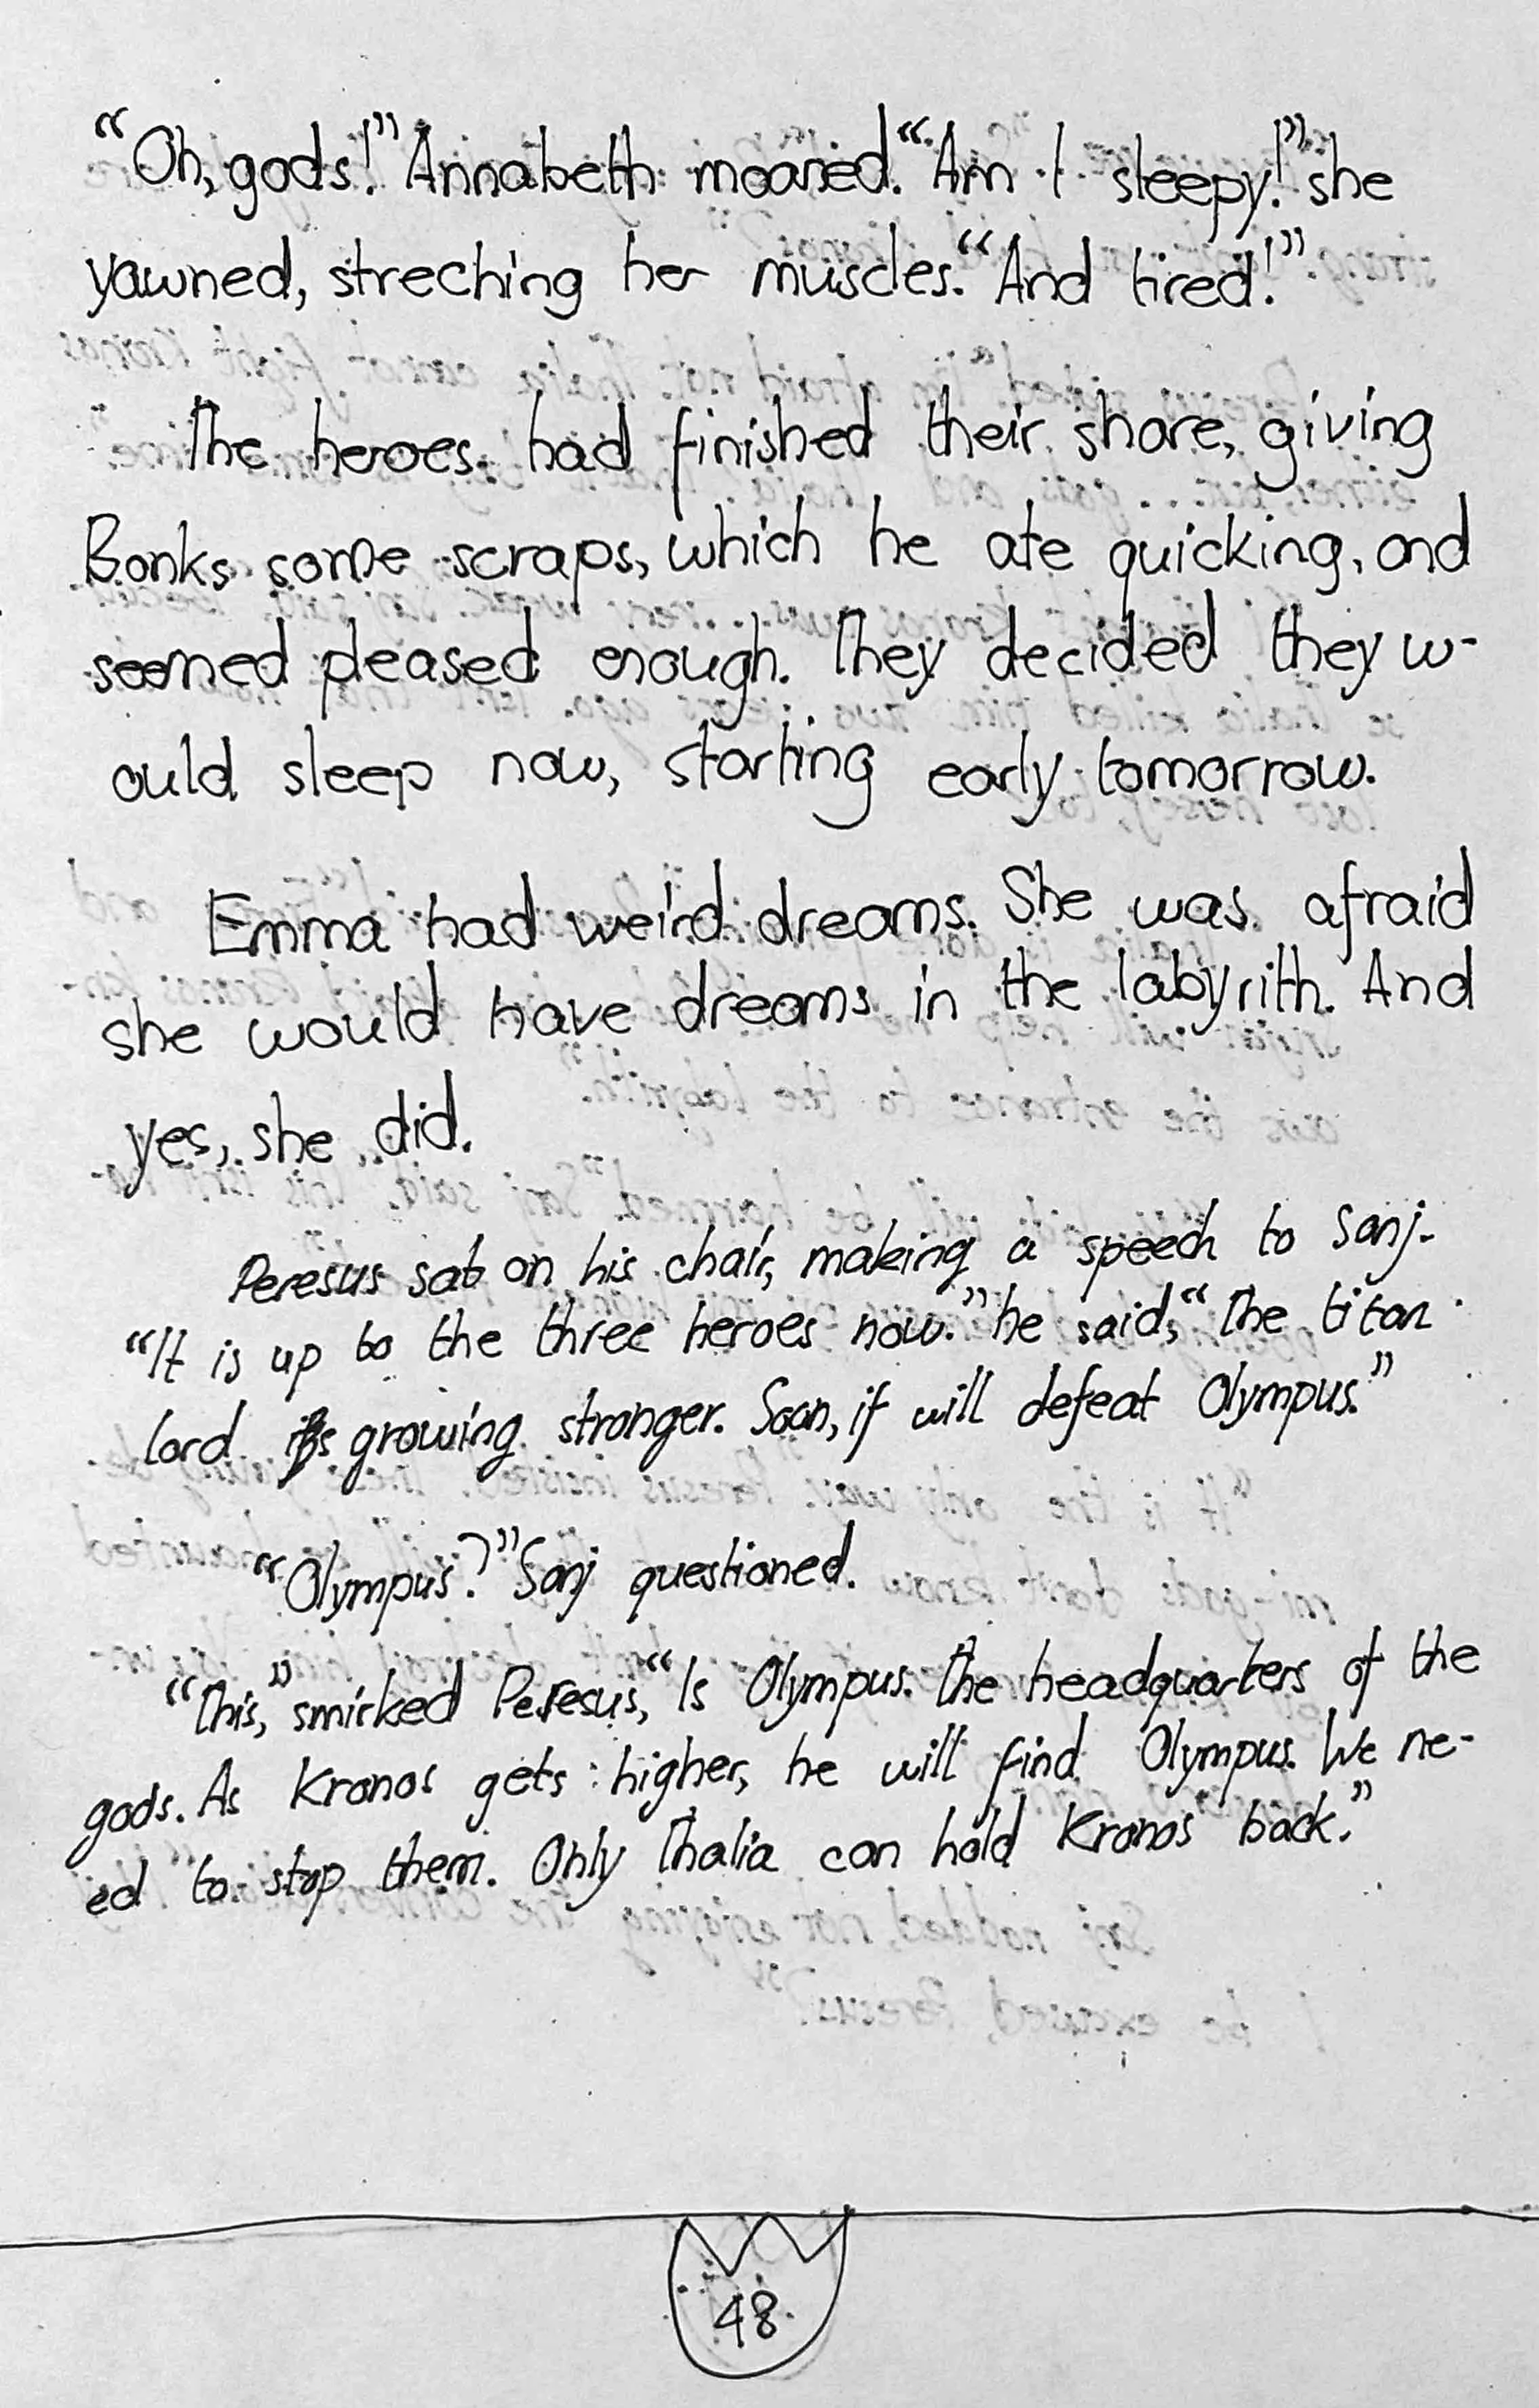 “Oh, gods!” Annabeth moaned. “Am I sleepy!” she
yawned, streching her muscles. “And tired!”
The heroes had finished their share, giving
Bonks some scraps, which he ate quicking, and
seemed pleased enough. They decided they w-
ould sleep now, starting early tomorrow.
Emma had weird dreams. She was afraid
she would have dreams in the labyrith. And
yes, she did.
Peresus sat on his chair, making a speech to Sanj.
“It is up to the three heroes now.” he said, “The titan
lord is growing stronger. Soon, if will defeat Olympus.”
“Olympus?” Sanj questioned.
“This,” smirked Peresus, “Is Olympus. The headquarters of the
gods. As Kronos gets higher, he will find Olympus. We ne-
ed to stop them. Only Thalia can hold Kronos back.”
48